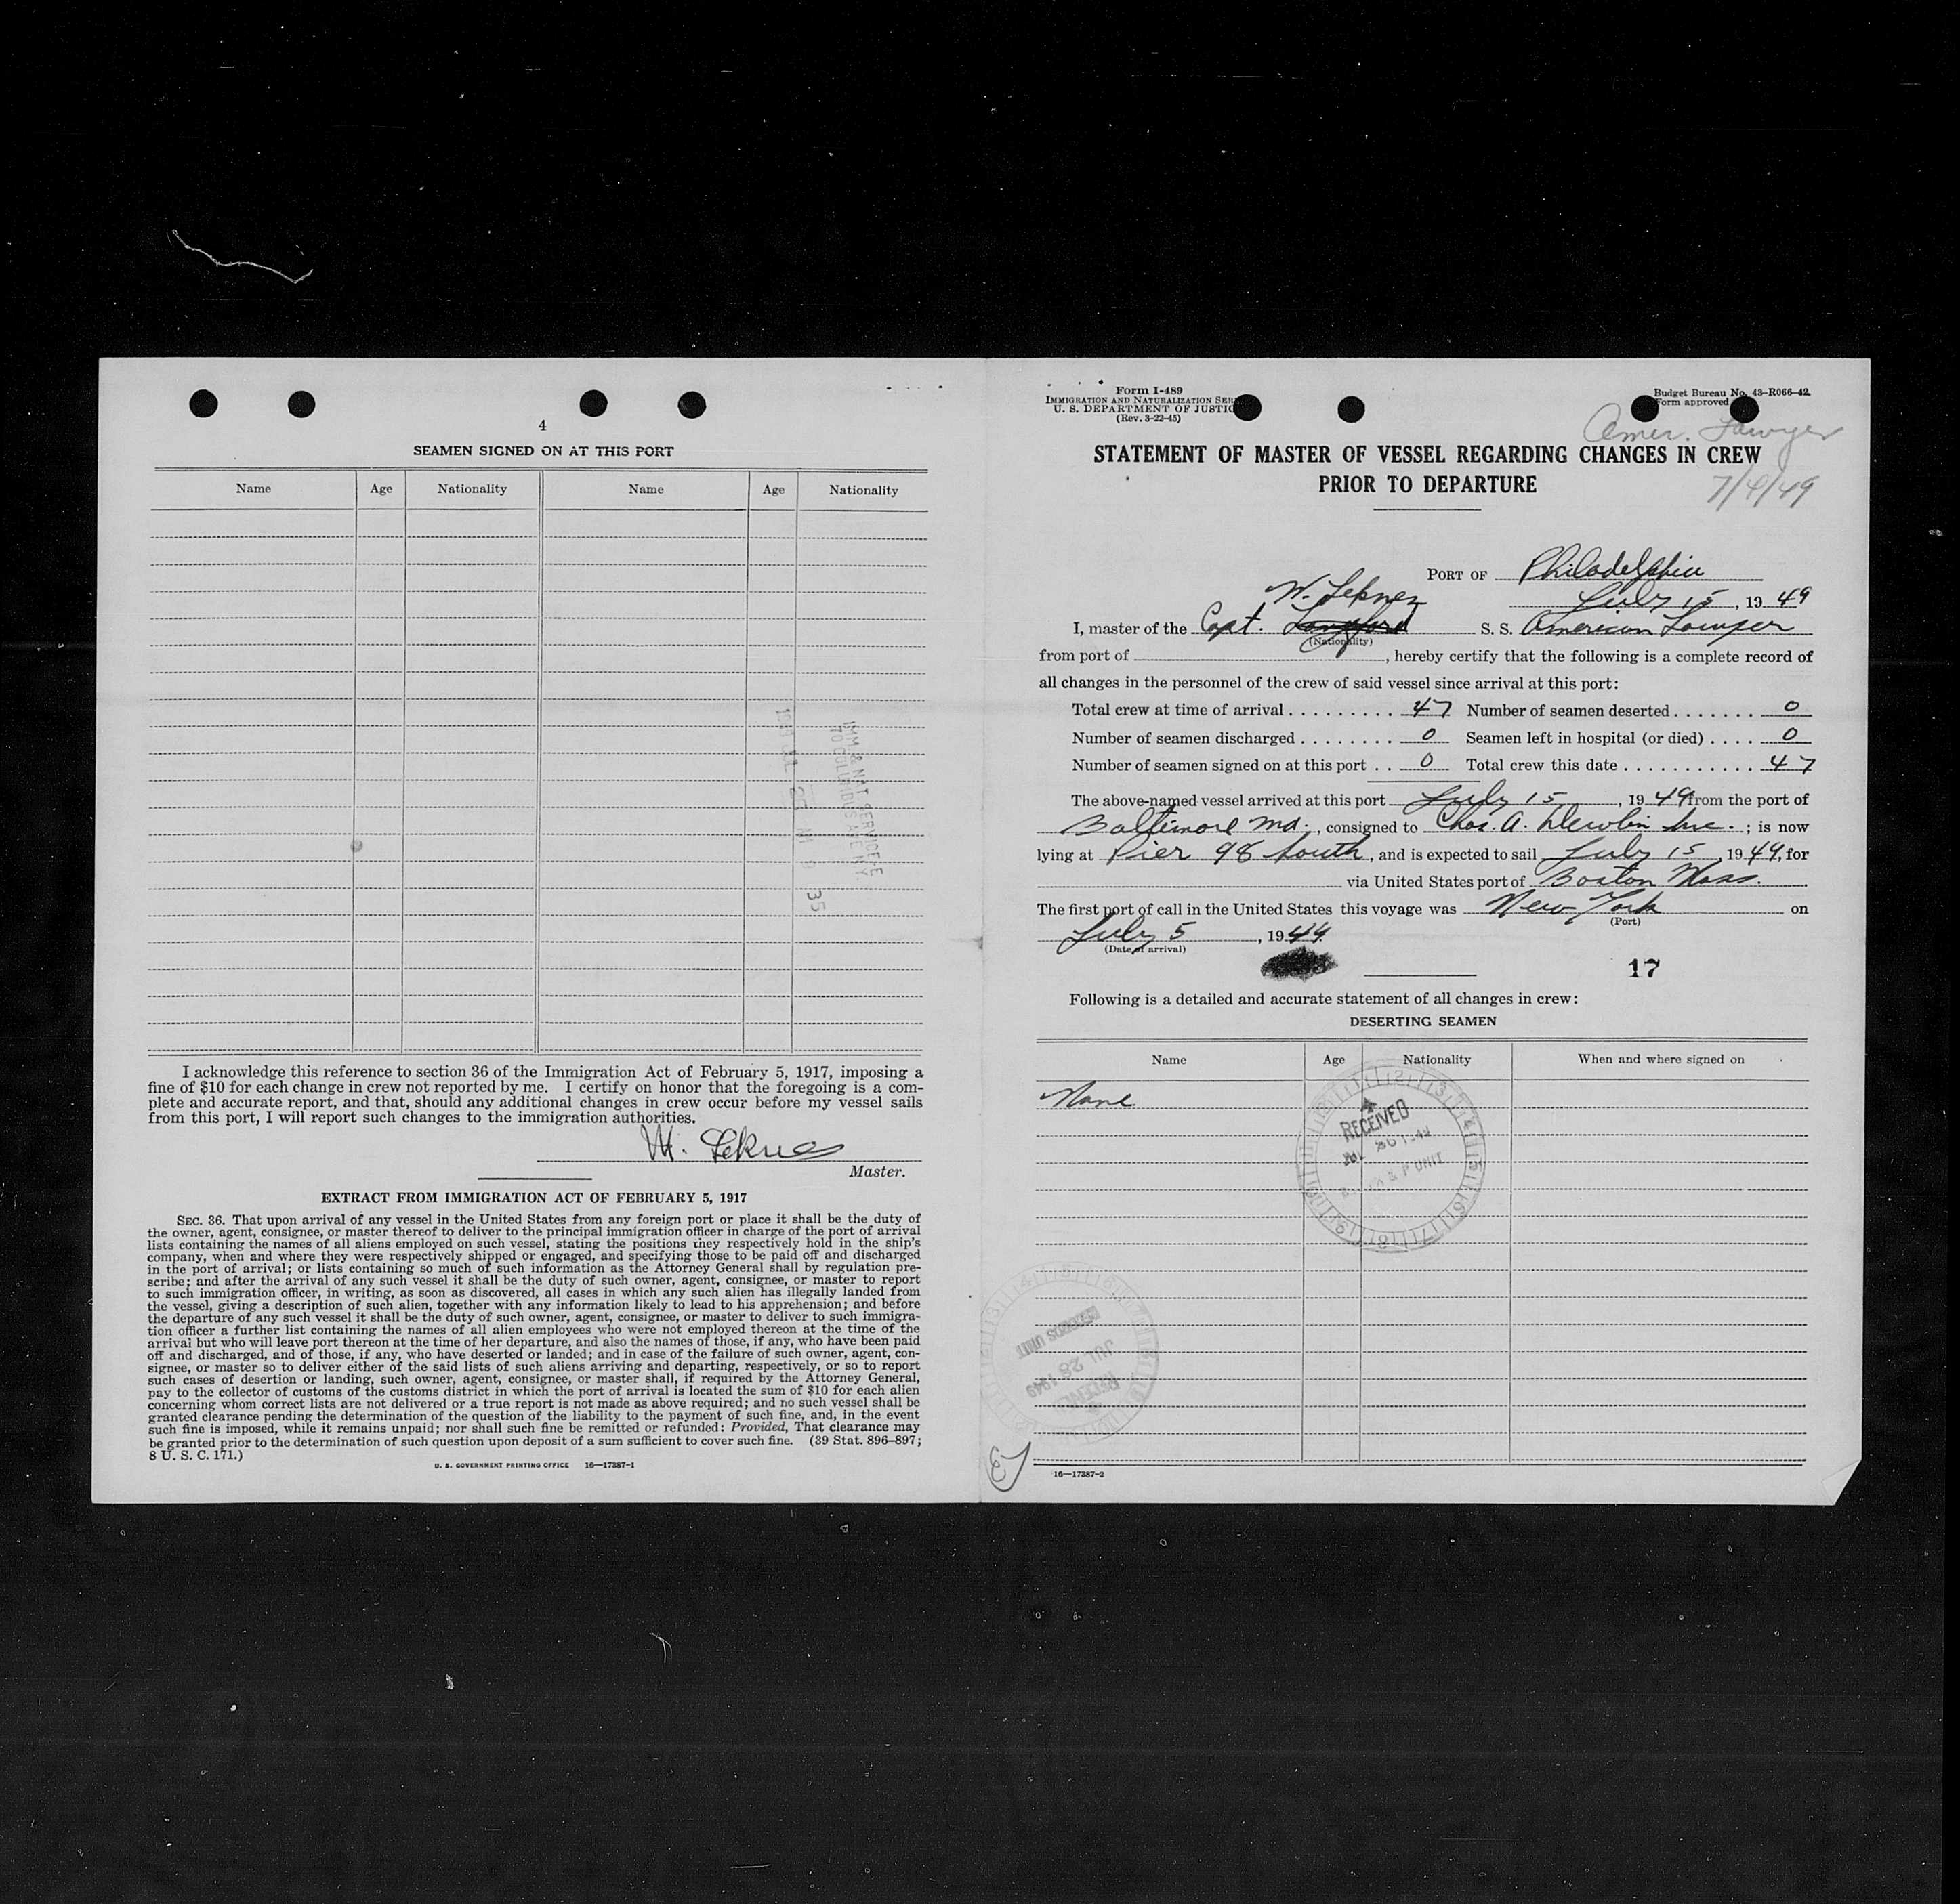 4
SEAMEN SIGNED ON AT THIS PORT
Name Age Nationality Name Age Nationality
IMM & NAT SERVICE
70 COLUMBUS AVE N.Y.
35
I acknowledge this reference to section 36 of the Immigration Act of February 5, 1917, imposing a
fine of $10 for each change in crew not reported by me. I certify on honor that the foregoing is a com-
plete and accurate report, and that, should any additional changes in crew occur before my vessel sails
from this port, I will report such changes to the immigration authorities.
Master.
EXTRACT FROM IMMIGRATION ACT OF FEBRUARY 5, 1917
SEC. 36. That upon arrival of any vessel in the United States from any foreign port or place it shall be the duty of
the owner, agent, consignee, or master thereof to deliver to the principal immigration officer in charge of the port of arrival
lists containing the names of all aliens employed on such vessel, stating the positions they respectively hold in the ship's
company, when and where they were respectively shipped or engaged, and specifying those to be paid off and discharged
in the port of arrival; or lists containing so much of such information as the Attorney General shall by regulation pre-
scribe; and after the arrival of any such vessel it shall be the duty of such owner, agent, consignee, or master to report
to such immigration officer, in writing, as soon as discovered, all cases in which any such alien has illegally landed from
the vessel, giving a description of such alien, together with any information likely to lead to his apprehension; and before
the departure of any such vessel it shall be the duty of such owner, agent, consignee, or master to deliver to such immigra-
tion officer a further list containing the names of all alien employees who were not employed thereon at the time of the
arrival but who will leave port thereon at the time of her departure, and also the names of those, if any, who have been paid
off and discharged, and of those, if any, who have deserted or landed; and in case of the failure of such owner, agent, con-
signee, or master so to deliver either of the said lists of such aliens arriving and departing, respectively, or so to report
such cases of desertion or landing, such owner, agent, consignee, or master shall, if required by the Attorney General,
pay to the collector of customs of the customs district in which the port of arrival is located the sum of $10 for each alien
concerning whom correct lists are not delivered or a true report is not made as above required; and no such vessel shall be
granted clearance pending the determination of the question of the liability to the payment of such fine, and, in the event
such fine is imposed, while it remains unpaid; nor shall such fine be remitted or refunded: Provided, That clearance may
be granted prior to the determination of such question upon deposit of a sum sufficient to cover such fine. (39 Stat. 896–897;
8 U. S. C. 171.)
U. S. GOVERNMENT PRINTING OFFICE 16—17387-1
Form I-489
IMMIGRATION AND NATURALIZATION SER
U. S. DEPARTMENT OF JUSTIC
(Rev. 3-22-45)
Budget Bureau No. 43-R066-42.
Form approved
Amer. Lawyer
STATEMENT OF MASTER OF VESSEL REGARDING CHANGES IN CREW
PRIOR TO DEPARTURE
7/4/49
PORT OF Philadelphia
July 15, 19 49
I, master of the Capt. S. S. American Lawyer
(Nationality)
from port of , hereby certify that the following is a complete record of
all changes in the personnel of the crew of said vessel since arrival at this port:
Total crew at time of arrival 47 Number of seamen deserted 0
Number of seamen discharged 0 Seamen left in hospital (or died) 0
Number of seamen signed on at this port 0 Total crew this date 47
The above-named vessel arrived at this port July 15, 19 49 from the port of
Baltimore Md., consigned to Chas. A. Dewlin Inc.; is now
lying at Pier 98 South, and is expected to sail July 15, 19 49, for
via United States port of Boston Mass.
The first port of call in the United States this voyage was New York on
(Port)
July 5, 19 49
(Date of arrival)
17
Following is a detailed and accurate statement of all changes in crew:
DESERTING SEAMEN
Name Age Nationality When and where signed on
None
RECEIVED
P UNIT
RECORDS UNIT
JUL 28 1949
RECEIVED
16—17387-2